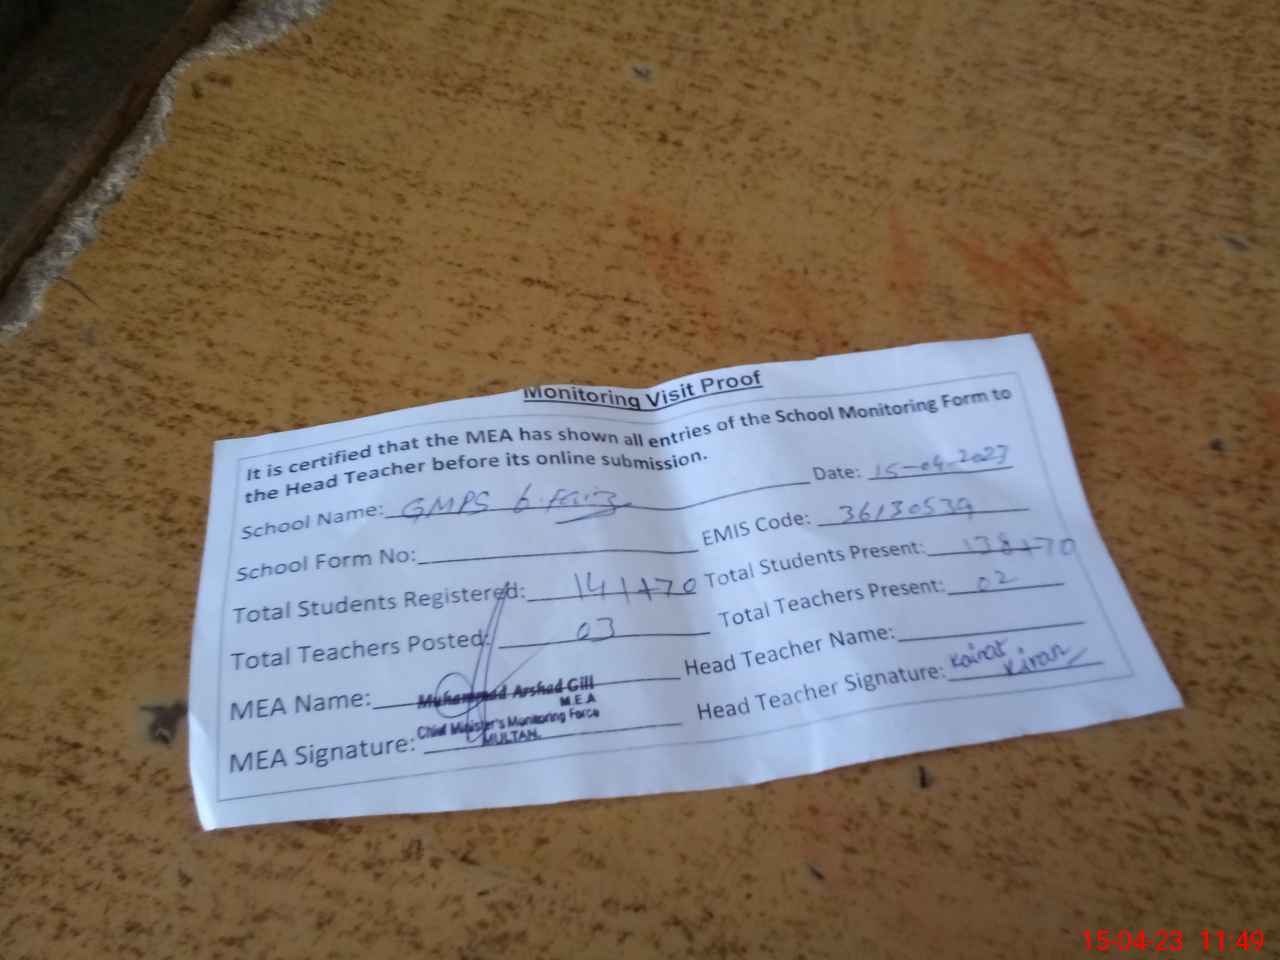 Monitoring Visit Proof
It is certified that the MEA has shown all entries of the School Monitoring Form to
the Head Teacher before its online submission.
Date: 15-04-2023
School Name: GMPS 6. Faiz
School Form No:
EMIS Code: 36130539
Total Students Registered: 141+70
Total Students Present: 138+70
Total Teachers Posted: 03
Total Teachers Present: 02
MEA Name: Muhammad Arshad Gill
M.E.A
Head Teacher Name:
MEA Signature: Chief Minister's Monitoring Force
MULTAN.
Head Teacher Signature: Kainat
Kiran
15-04-23 11:49